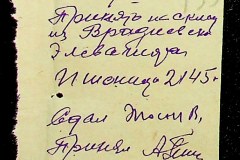 Принять на склад
из Врадиевско
Элеватора
Пшеница 2145 г
Сдал
Принял